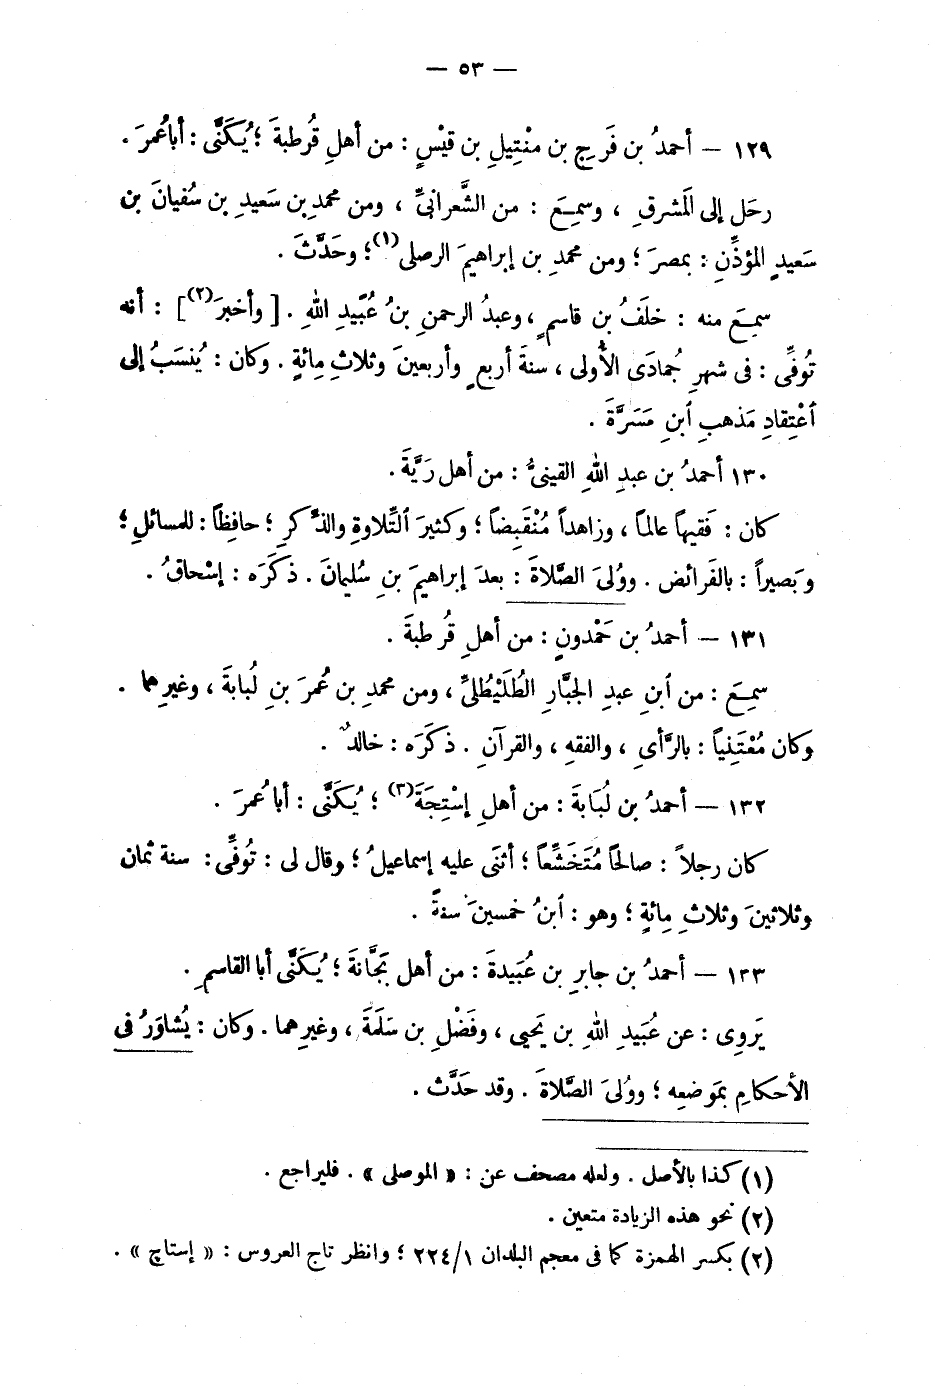 — ٥٣ —
١٢٩ — أحمدُ بن فَرَجِ بن منْتِيلِ بن قيْسٍ : من أهلِ قُرطبةَ ؛ يُكَنَّى : أباعُمرَ .
رحَل إلى المَشرقِ ، وسمِعَ : من الشَّعرانىِّ ، ومن محمدِ بن سَعيدِ بن سُفيانَ بن
سَعيدٍ المؤذِّنِ : بمصرَ ؛ ومن محمدِ بن إبراهيمَ الرصلى(١) ؛ وحَدَّثَ .
سمِعَ منه : خلَفُ بن قاسمٍ ، وعبدُ الرحمنِ بنُ عُبَيدِ اللهِ . [ وأخبرَ(٢) ] : أنه
تُوفِّى : فى شهرِ جُمادَى الأُولى ، سنةَ أربعٍ وأربعينَ وثلاثِ مِائةٍ . وكان : يُنسَبُ إلى
ٱعْتِقادِ مَذهبِ ٱبنِ مَسَرَّةَ .
١٣٠ أحمدُ بن عبدِ اللهِ القينىُّ : من أهل رَيَّةَ .
كان : فَقيهاً عالماً ، وزاهداً مُنْقَبِضاً ؛ وكثيرَ التِّلاوةِ والذِّكرِ ؛ حافِظاً : للمسائلِ ؛
وبَصيراً : بالفَرائض . ووُلىَ الصَّلاةَ : بعدَ إبراهيمَ بنِ سُليمانَ . ذكَرَه : إسْحاقُ .
١٣١ — أحمدُ بن حَمْدونٍ : من أهلِ قُرطبةَ .
سمِعَ : من ٱبنِ عبدِ الجبَّارِ الطُلَيْطُلىِّ ، ومن محمدِ بن عُمرَ بنِ لُبابةَ ، وغيرِهما .
وكان مُعْتَنِياً : بالرَّأىِ ، والفقهِ ، والقرآنِ . ذكَرَه : خالدٌ .
١٣٢ — أحمدُ بن لُبَابةَ : من أهلِ إسْتِجَةَ(٣) ؛ يُكَنَّى : أبا عُمرَ .
كان رجلاً : صالحًا مُتَخَشِّعاً ؛ أثنَى عليه إسماعيلُ ؛ وقال لى : تُوفِّى : سنة ثمان
وثلاثينَ وثلاثِ مِائةٍ ؛ وهو : ٱبنُ خمسينَ سنةً .
١٣٣ — أحمدُ بن جابرِ بن عُبَيدةَ : من أهل بَجَّانةَ ؛ يُكَنَّى أبا القاسمِ .
يَروِى : عن عُبَيدِ اللهِ بن يَحيى ، وفَضْلِ بن سَلَمَةَ ، وغيرِهما . وكان : يُشاوَرُ فى
الأحكامِ بمَوضعِه ؛ ووُلىَ الصَّلاةَ . وقد حَدَّث .
(١) كذا بالأصل . ولعله مصحف عن : « الموصلى » . فليراجع .
(٢) نحو هذه الزيادة متعين .
(٢) بكسر الهمزة كما فى معجم البلدان ٢٢٤/١ ؛ وانظر تاج العروس : « إستاج » .